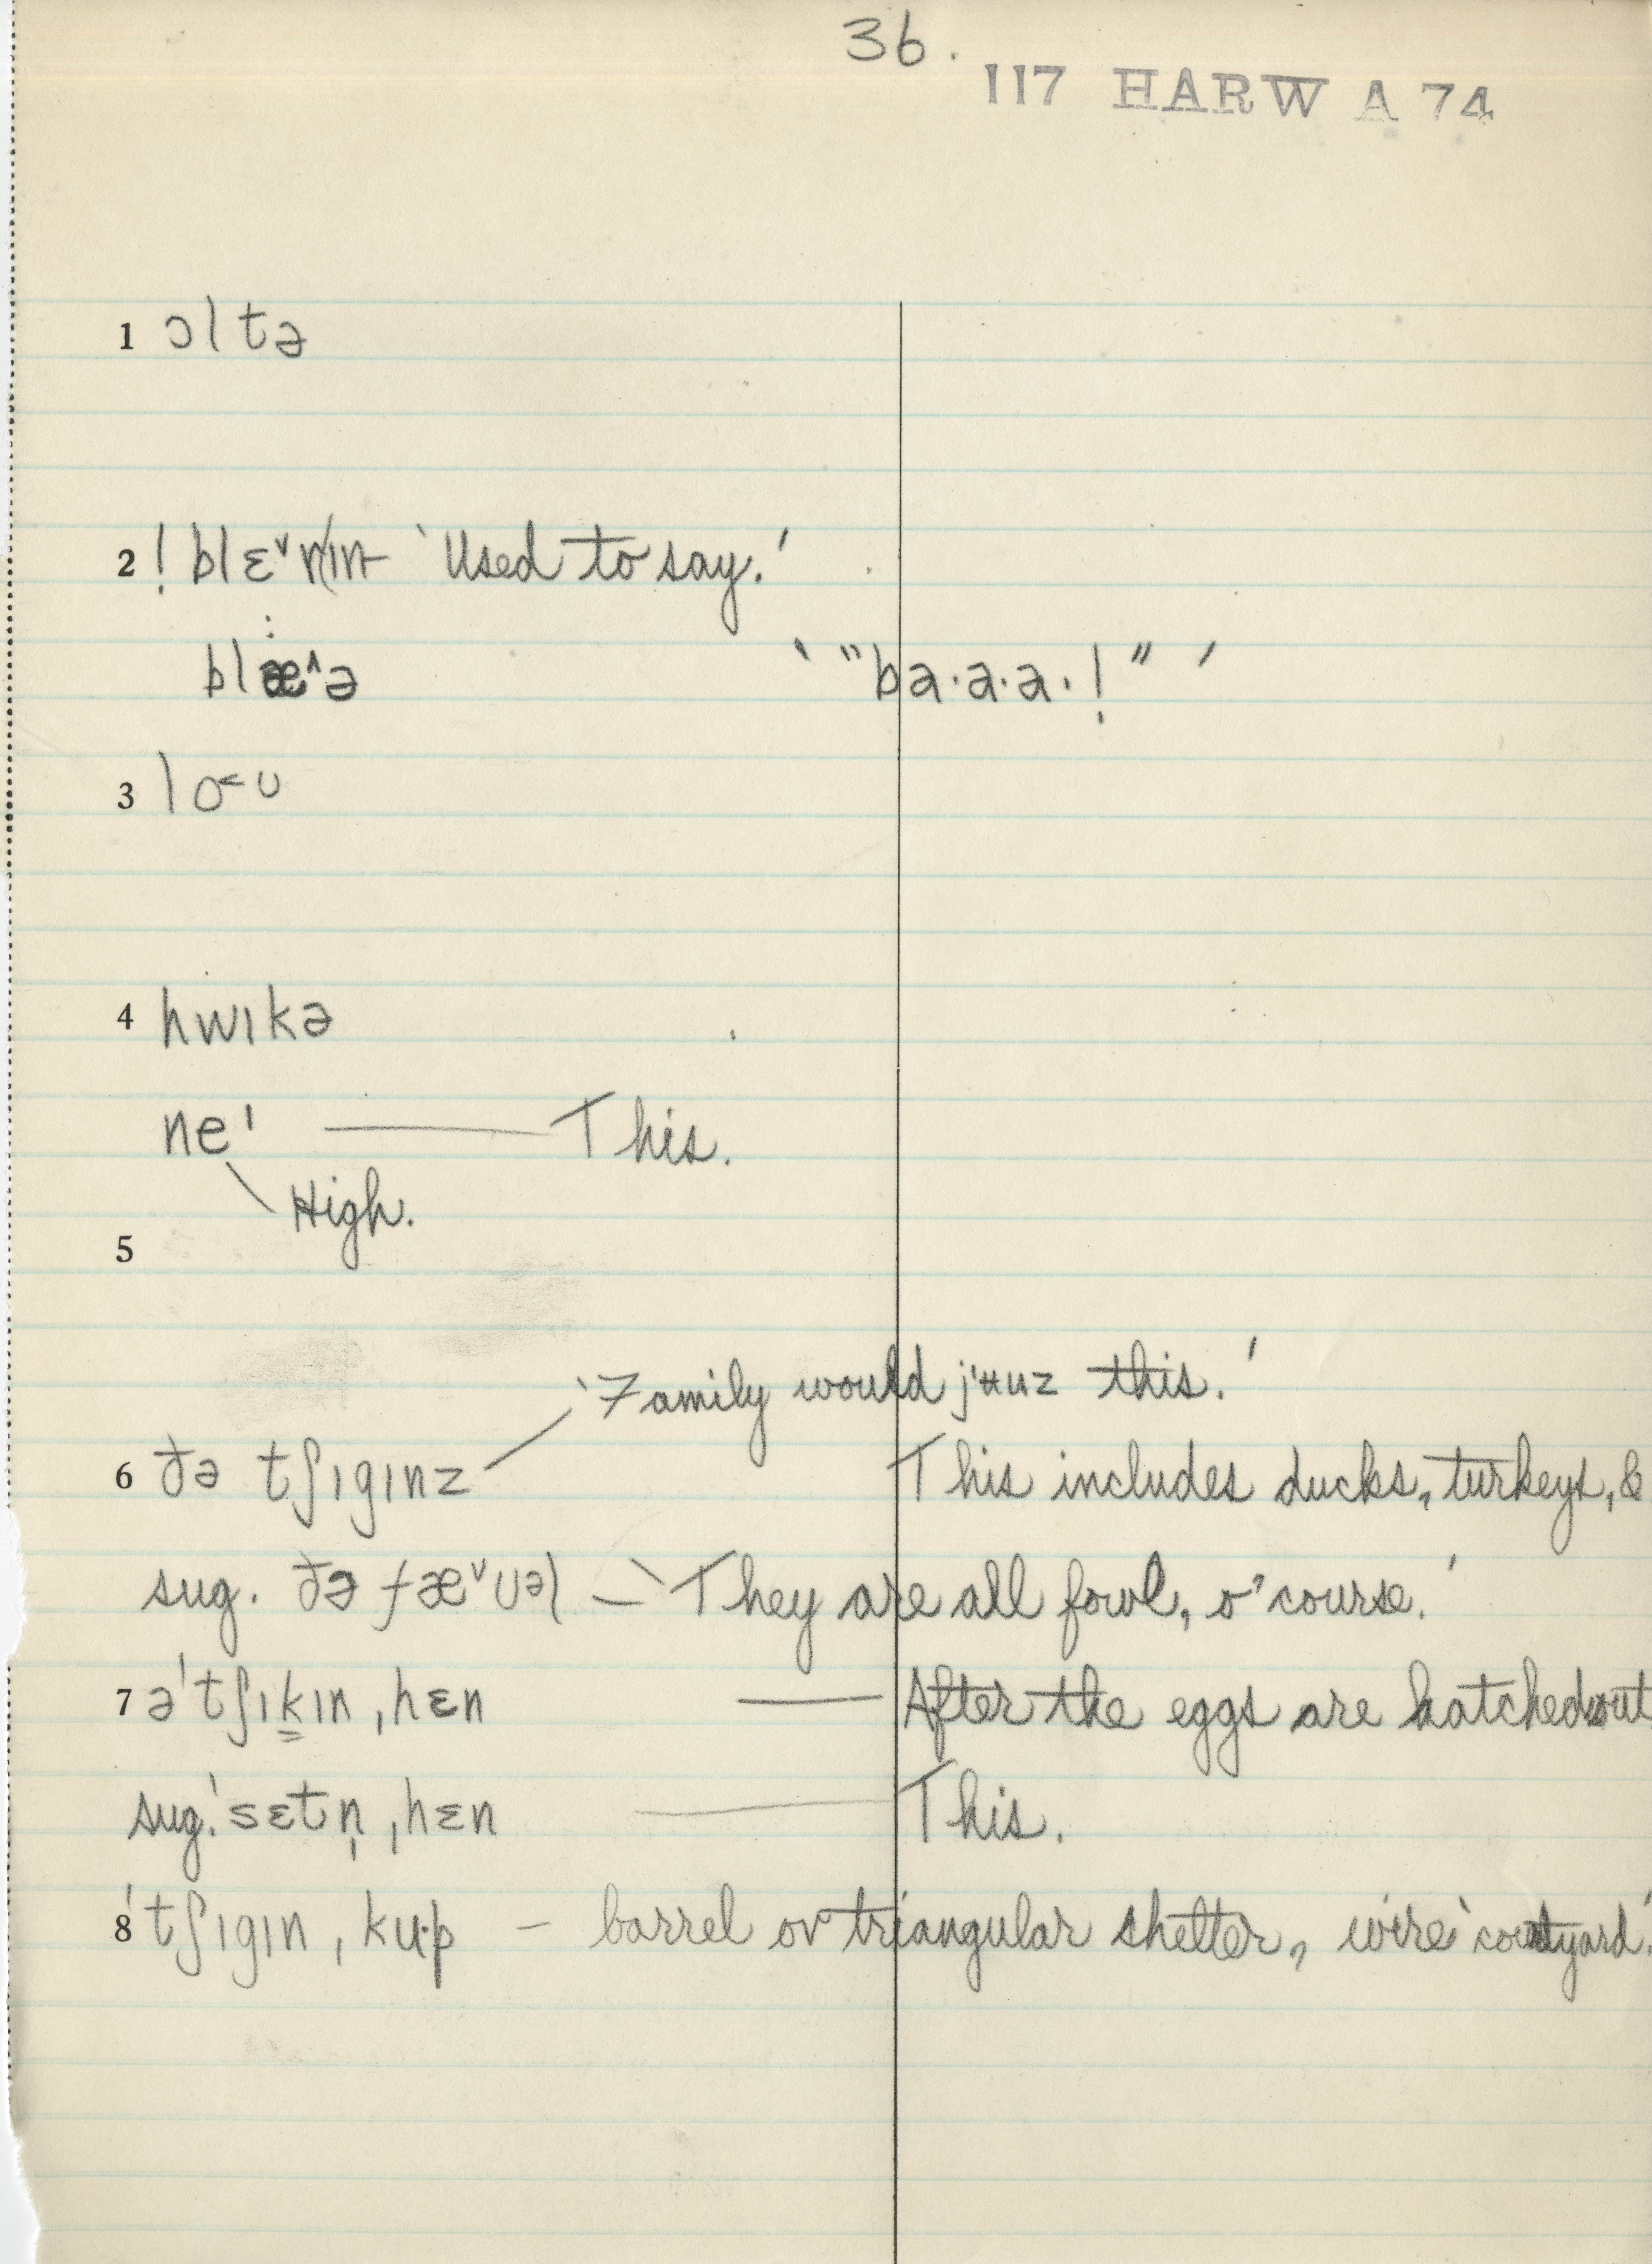 36.
117 HARW A 74
1 ɔltə
2 ! blɛ˅nɪn ‘Used to say.’
blæ˄ə ‘ “ba·a·a·!” ’
3 lo˂ʊ
4 hwɪkə
ne' — This.
High.
5
‘Family would j'ʉuz this.’
6 ðə tʃɪgɪnz This includes ducks, turkeys, &
sug. ðə fæ˅ʊəl — ‘They are all fowl, o’ course.’
7 ə'tʃɪkɪn ˌhɛn — After the eggs are hatched out
sug. 'sɛtn̩ ˌhɛn — This.
8 'tʃɪgɪn ˌku·p – barrel or triangular shelter, wire ‘courtyard.’